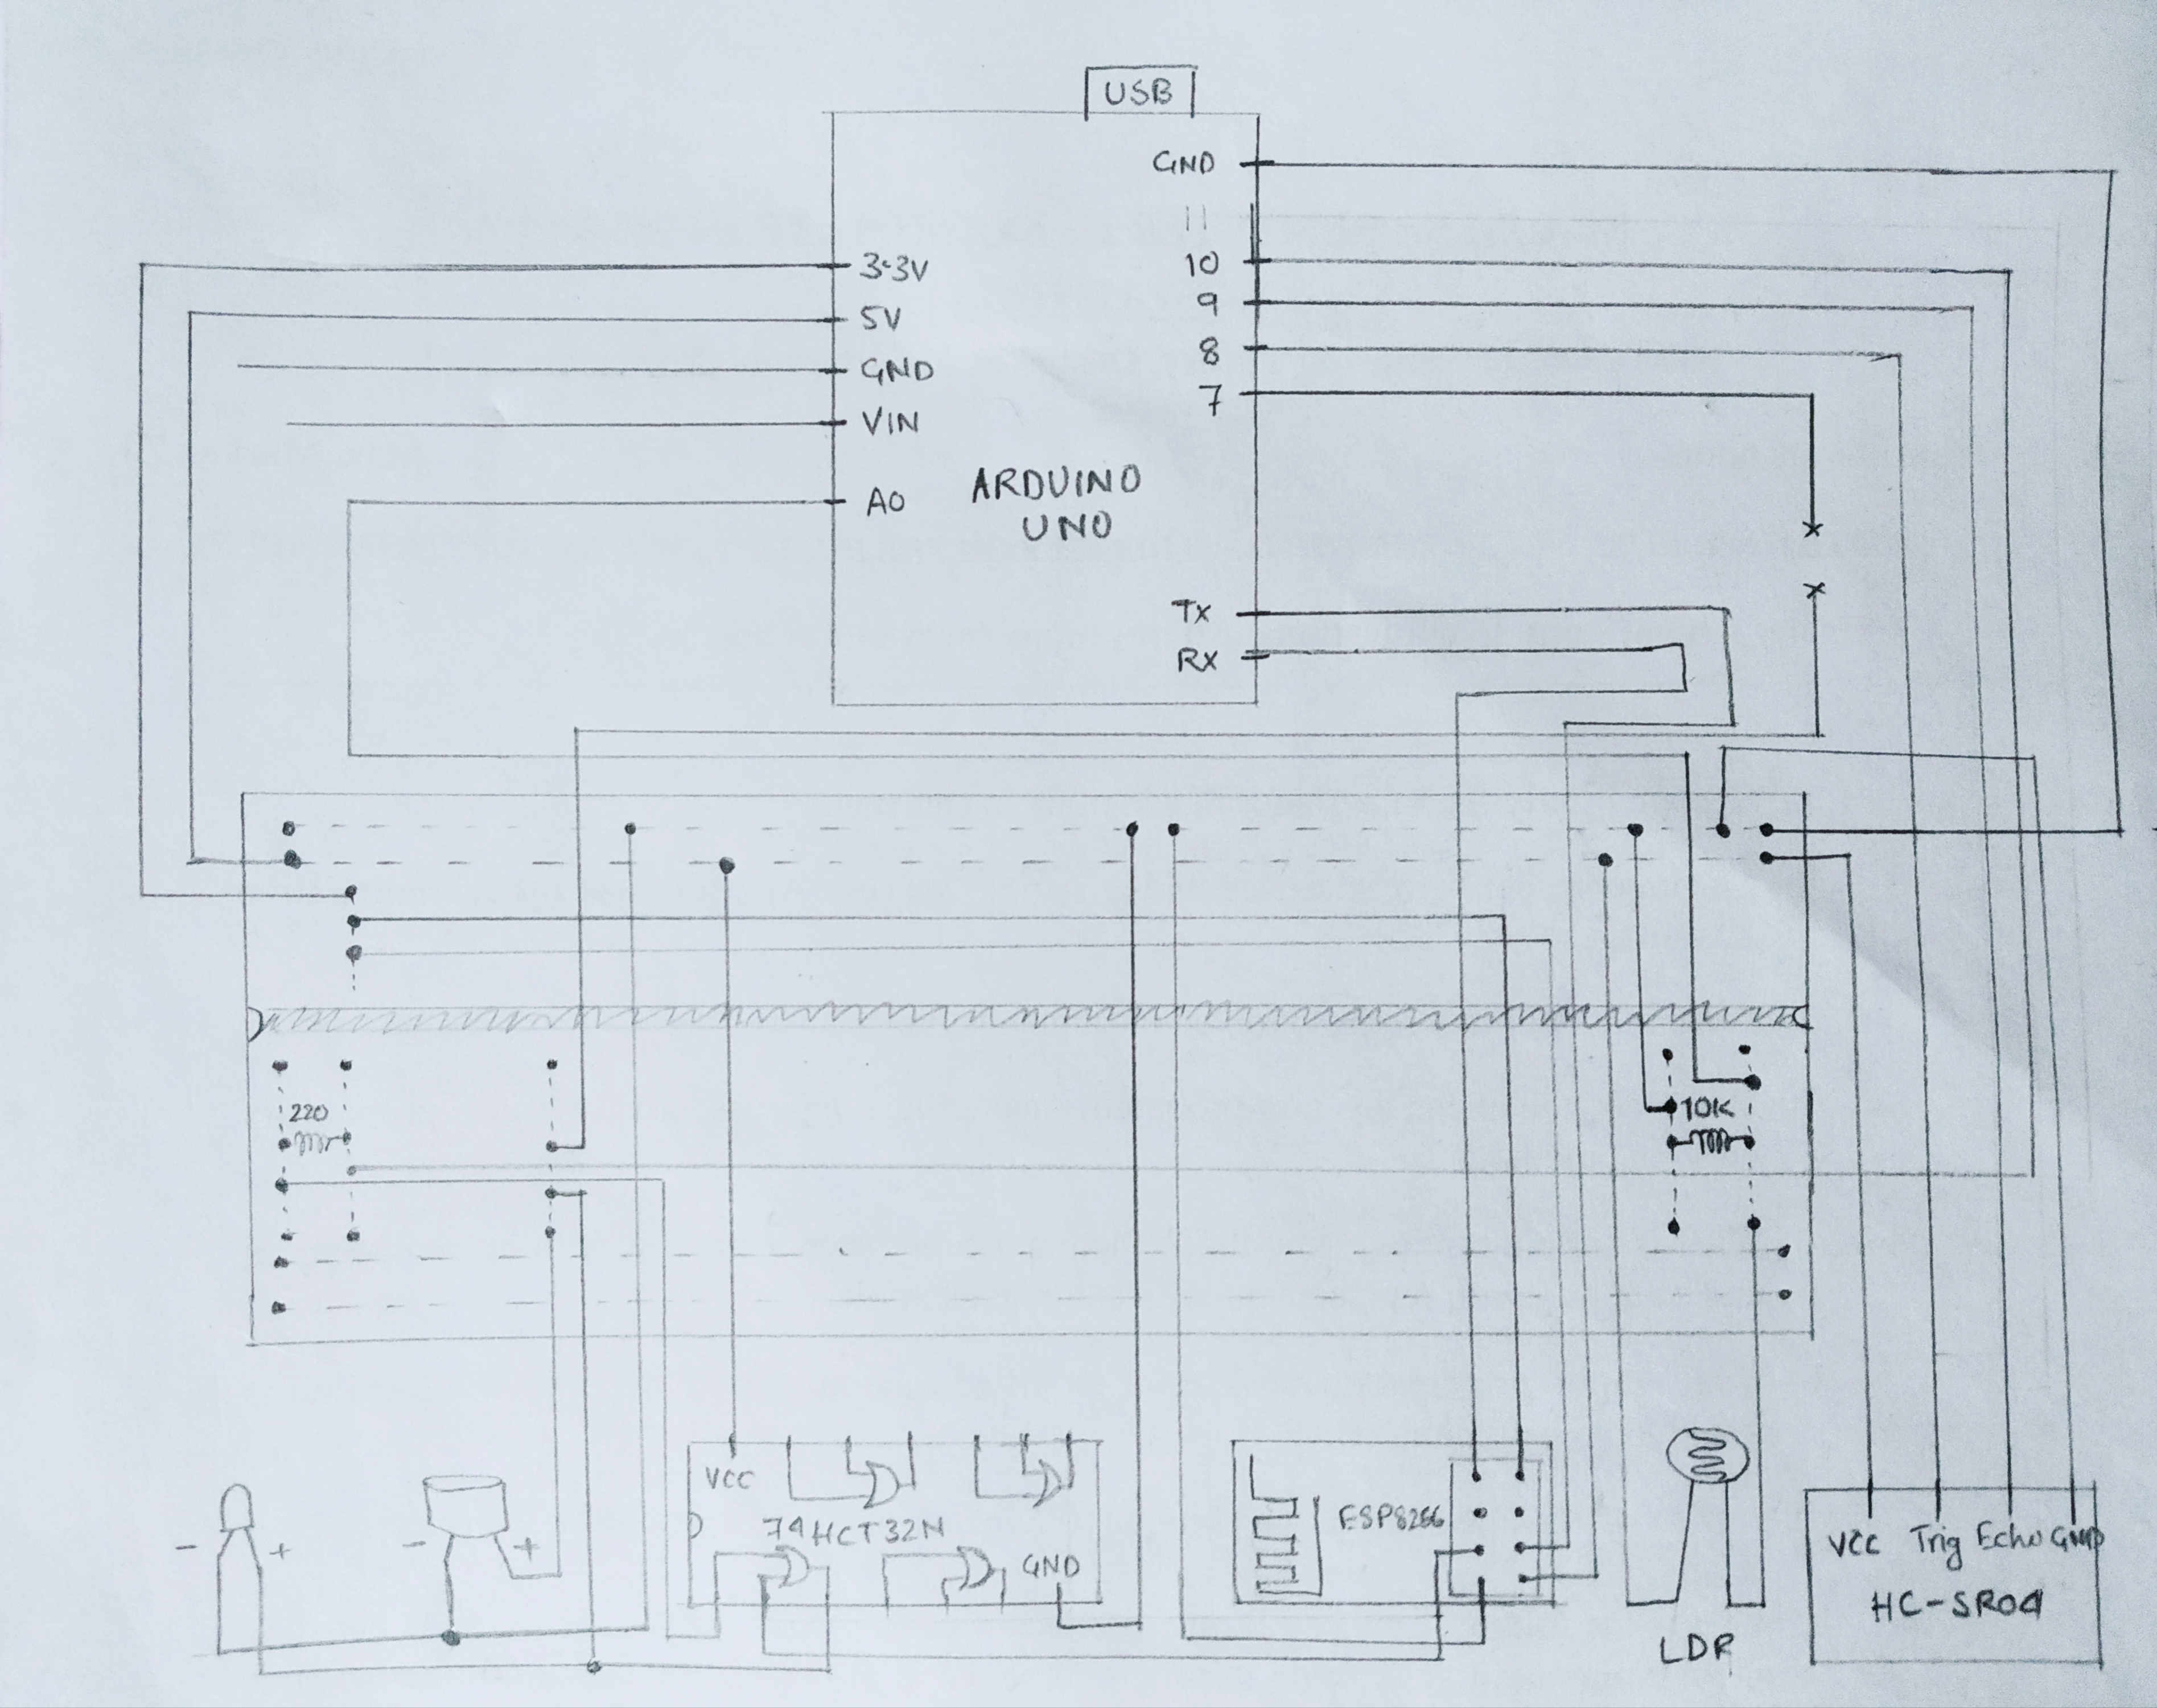 USB
GND
11
3.3V
10
5V
9
GND
8
VIN
7
A0
ARDUINO
UNO
Tx
Rx
220
10K
VCC
74HCT32N
GND
ESP8266
- +
- +
VCC Trig Echo GND
HC-SR04
LDR